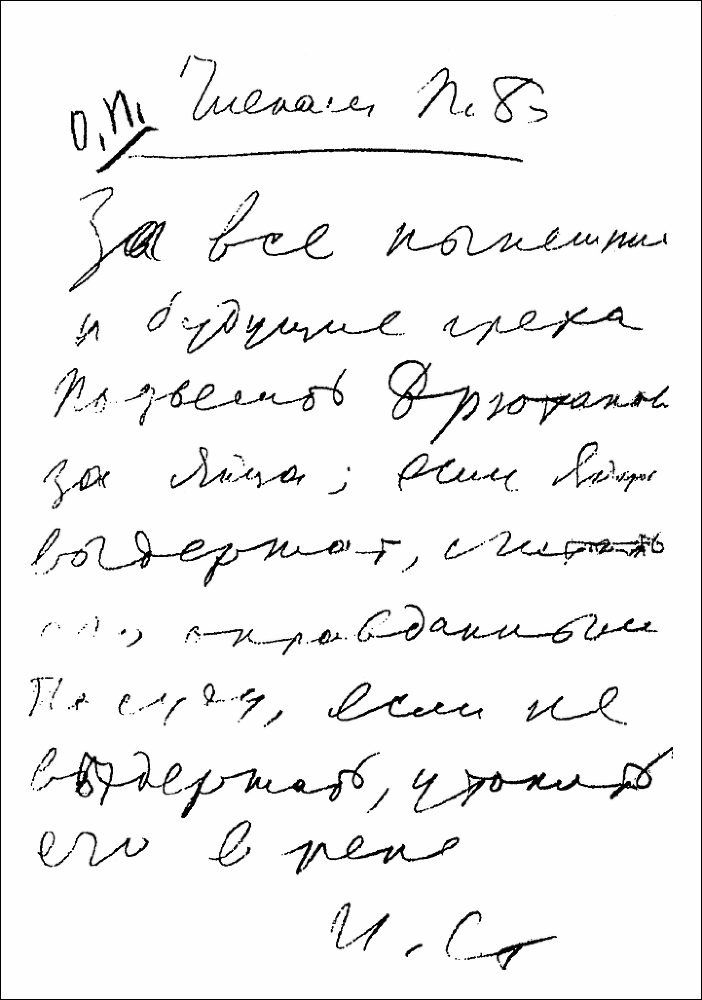 О.П. Членам П.Б.
За все нынешние
и будущие греха
Подвесить Брюханова
за яйца; если яйца
выдержат, считать
его оправданным
По суду, если не
выдержать, утопить
его в реке
И. Ст